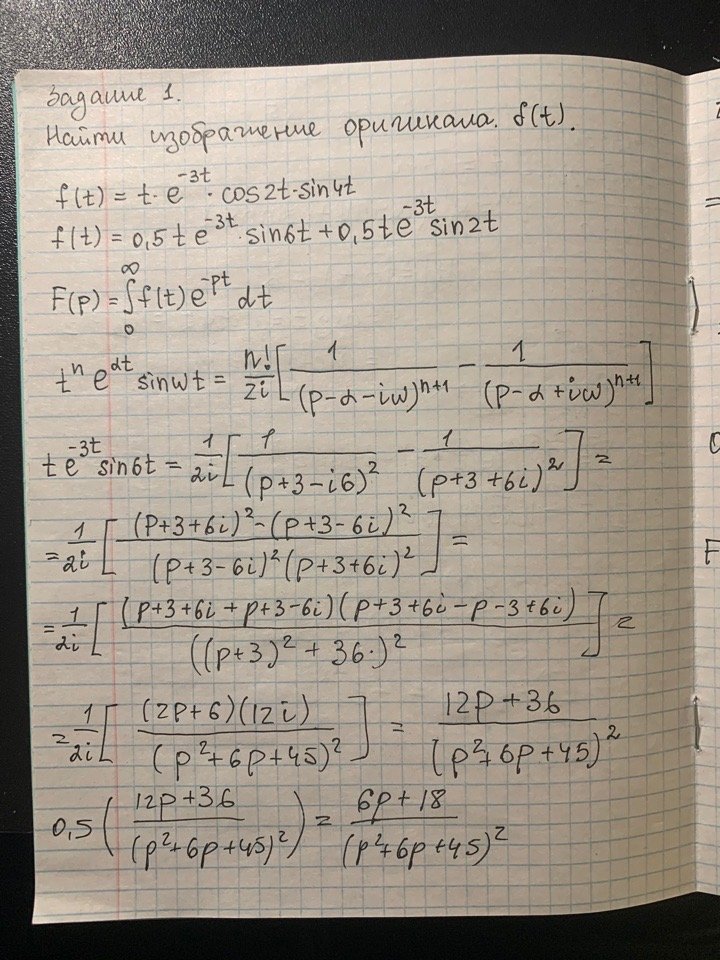 Задание 1.
Найти изображение оригинала f(t).
f(t) = t · e^{-3t} · cos2t · sin4t
f(t) = 0,5 t e^{-3t} · sin6t + 0,5 t e^{-3t} sin2t
F(p) = ∫_0^∞ f(t) e^{-pt} dt
t^n e^{αt} sinωt = n!/2i [ 1/(p-α-iω)^{n+1} - 1/(p-α+iω)^{n+1} ]
t e^{-3t} sin6t = 1/2i [ 1/(p+3-i6)^2 - 1/(p+3+6i)^2 ] =
= 1/2i [ ((p+3+6i)^2-(p+3-6i)^2)/((p+3-6i)^2(p+3+6i)^2) ] =
= 1/2i [ ((p+3+6i+p+3-6i)(p+3+6i-p-3+6i))/((p+3)^2+36·)^2 ] =
= 1/2i [ ((2p+6)(12i))/(p^2+6p+45)^2 ] = (12p+36)/(p^2+6p+45)^2
0,5 ( (12p+36)/(p^2+6p+45)^2) ) = (6p+18)/(p^2+6p+45)^2